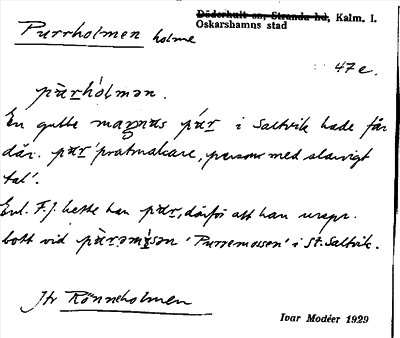 Döderhult sn, Stranda hd, Kalm. l.
Oskarshamns stad
Purrholmen holme
47 e.
pàrhólmən.
En gubbe magnas pár i Saltvik hade får
där. par 'pratmakare, person med slarvigt
tal'.
Enl. F.J. hette han par, därför att han urspr.
bott vid pàrəmòsən 'Purremossen' i St. Saltvik.
Jfr Rönneholmen
Ivar Modéer 1929